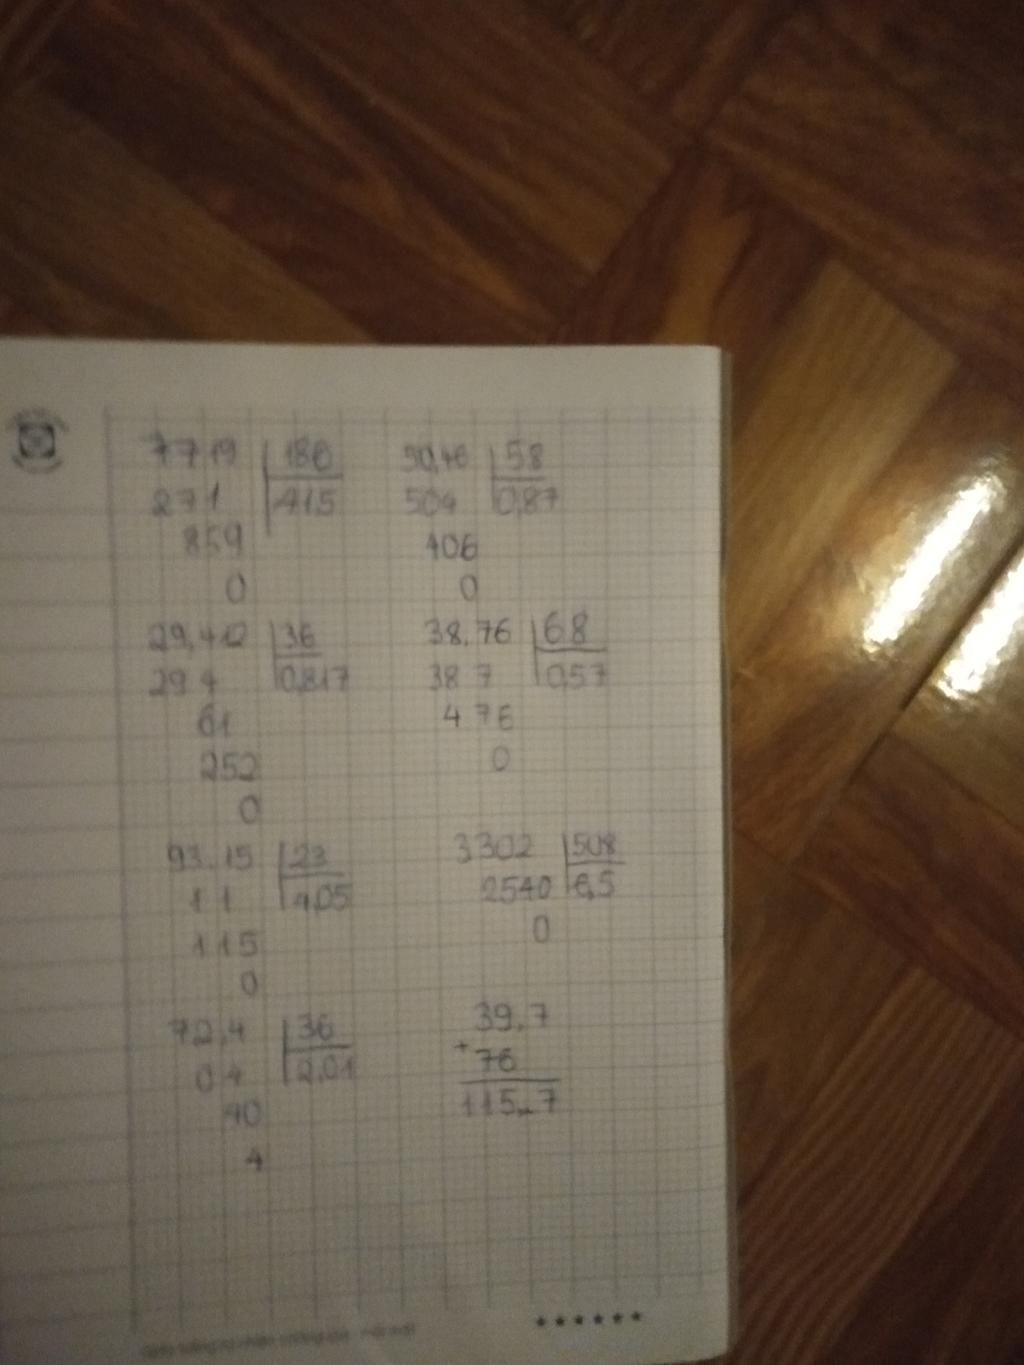 7719 186 50,46 58
271 415 504 0,87
859 406
0 0
29,412 36 38,76 68
29 4 0,817 38 7 0,57
61 4 76
252 0
0
93,15 23 3302 508
1 1 4,05 2540 6,5
115 0
0
72,4 36 39,7
0 4 2,01 + 76
40 115,7
4